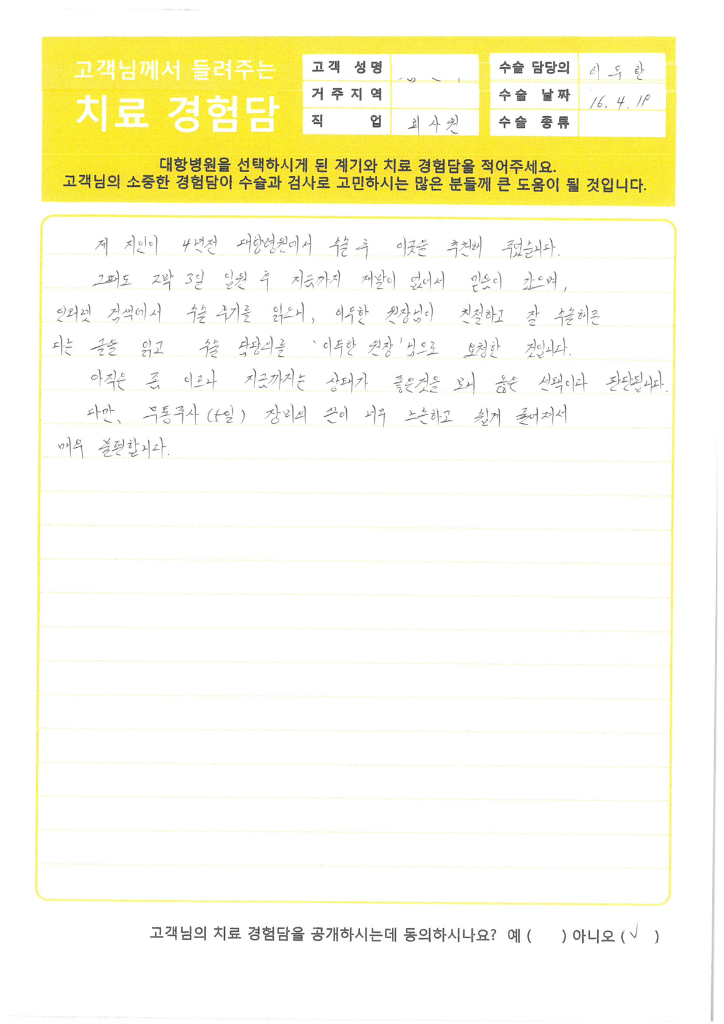 고객님께서 들려주는
치료 경험담
고객 성명
거주지역
직 업 회사원
수술 담당의 이두한
수술 날짜 16. 4. 19
수술 종류
대항병원을 선택하시게 된 계기와 치료 경험담을 적어주세요.
고객님의 소중한 경험담이 수술과 검사로 고민하시는 많은 분들께 큰 도움이 될 것입니다.
제 지인이 4년전 대항병원에서 수술 후 이곳을 추천해 주었습니다.
그때도 2박 3일 입원 후 지금까지 재발이 없어서 믿음이 갔으며,
인터넷 검색에서 수술 후기를 읽으니, 이두한 원장님이 친절하고 잘 수술해준
다는 글을 읽고 수술 담당의를 '이두한 원장'님으로 요청한 것입니다.
아직은 좀 이르나 지금까지는 상태가 좋은것을 보니 옳은 선택이다 판단됩니다.
다만, 무통주사 (5일) 장비의 끈이 너무 느슨하고 쉽게 풀어져서
매우 불편합니다.
고객님의 치료 경험담을 공개하시는데 동의하시나요? 예 ( ) 아니오 (√ )